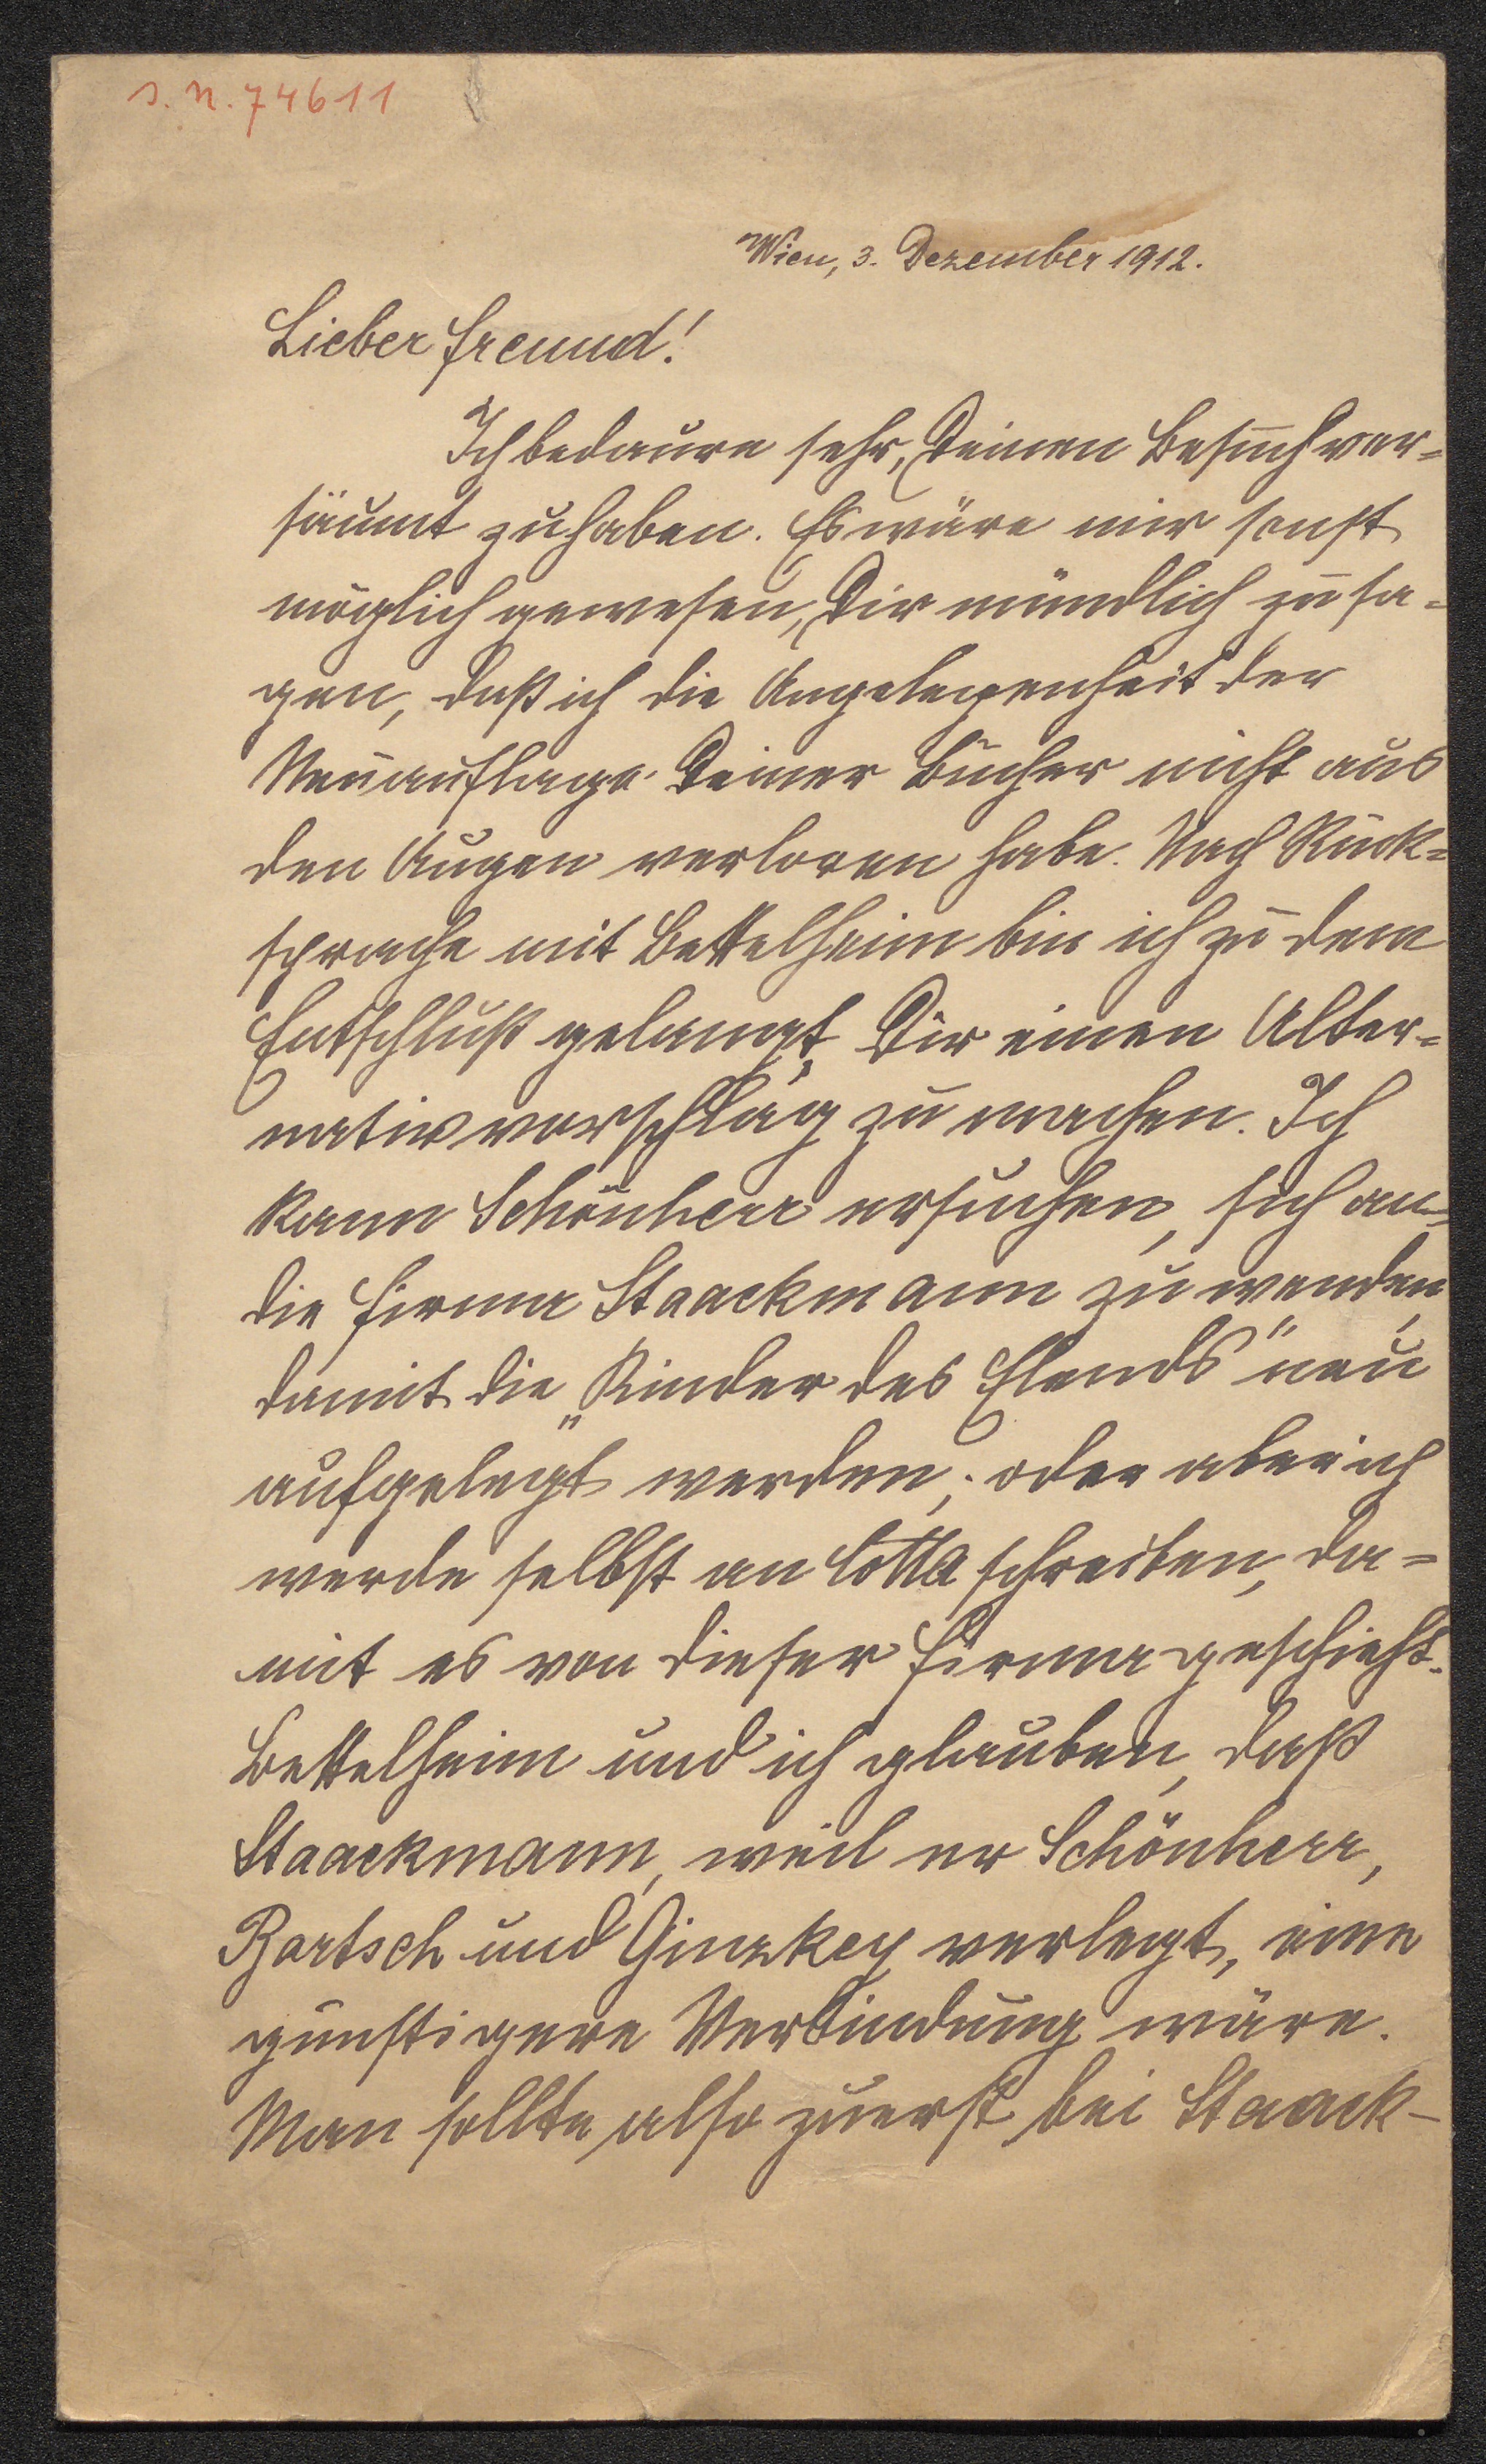 I. N. 74611
Wien, 3. Dezember 1912.
Lieber Freund!
Ich bedaure sehr, Deinen Besuch ver=
säumt zu haben. Es wäre mir sonst
möglich gewesen, Dir mündlich zu sa=
gen, daß ich die Angelegenheit der
Neuauflage Deiner Bücher nicht aus
den Augen verloren habe. Nach Rück=
sprache mit Bettelheim bin ich zu dem
Entschluß gelangt, Dir einen Alter=
nativvorschlag zu machen. Ich
kann Schönherr ersuchen, sich an
die Firma Staackmann zu wenden,
damit die „Kinder des Elends" neu
aufgelegt werden; oder aber ich
werde selbst an Cotta schreiben, da=
mit es von dieser Firma geschieht.
Bettelheim und ich glauben, daß
Staackmann, weil er Schönherr,
Bartsch und Ginzkey verlegt, eine
günstigere Verbindung wäre.
Man sollte also zuerst bei Staack-